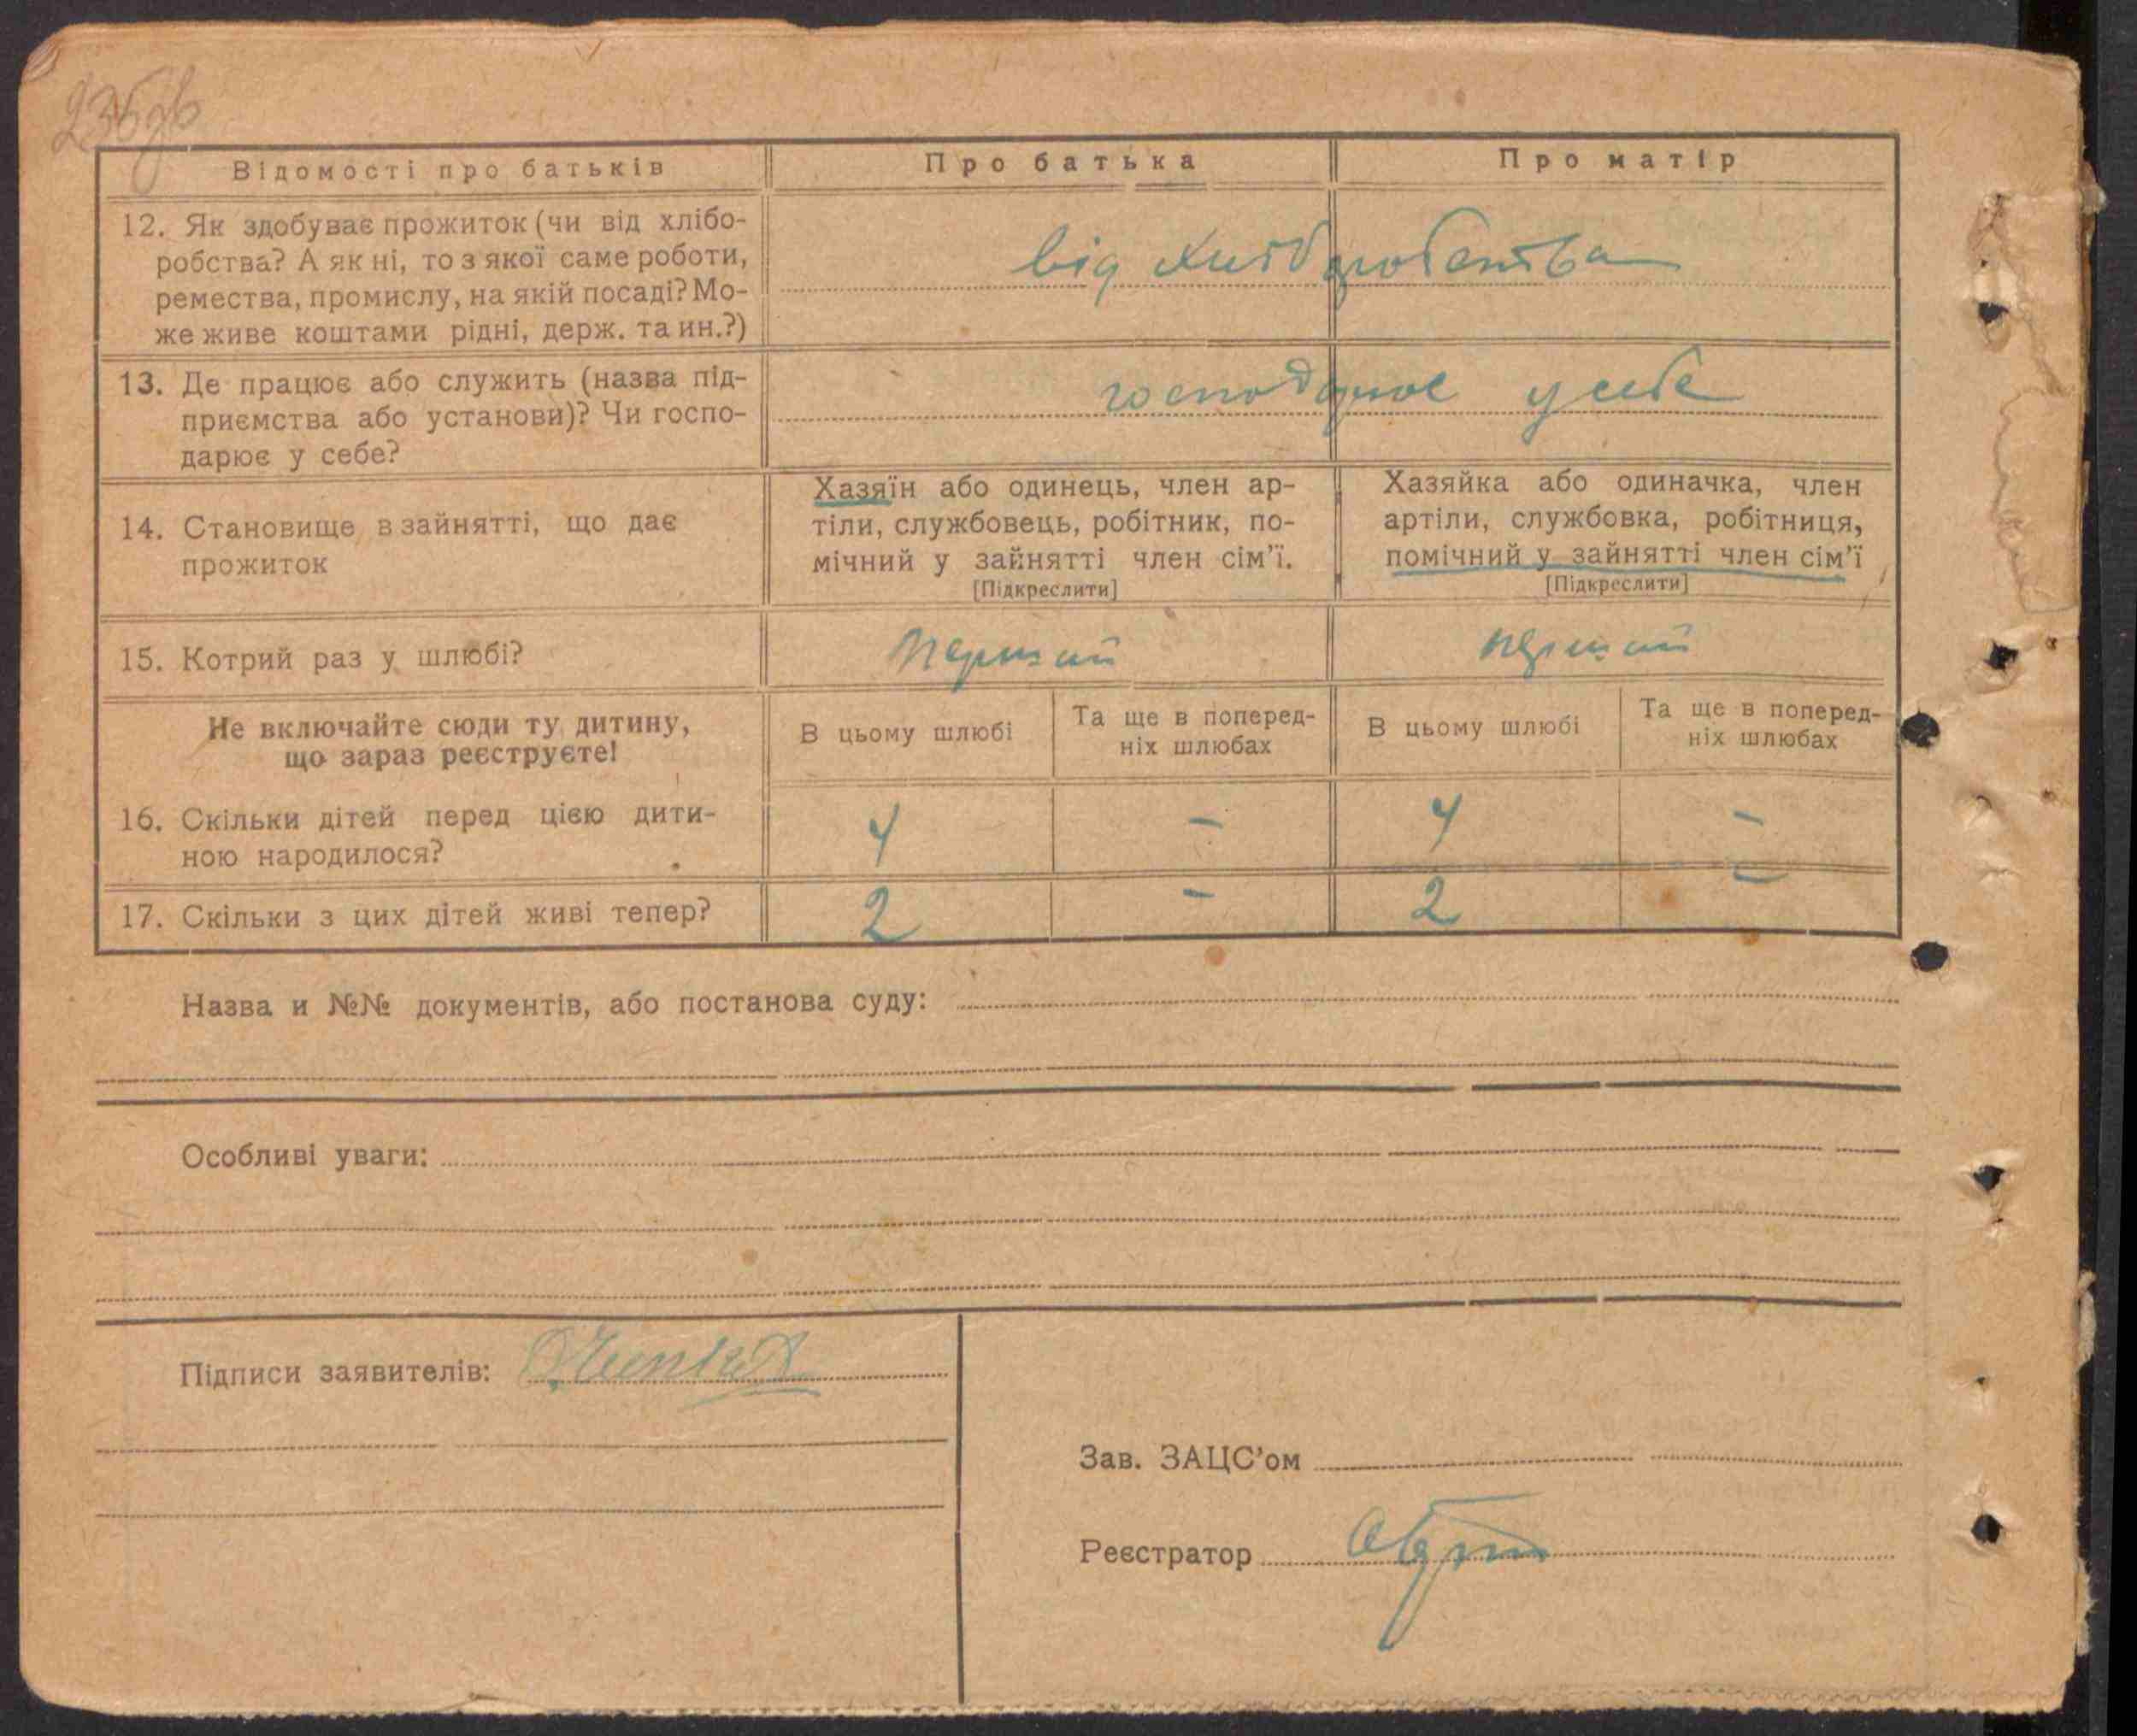 236зв
Відомості про батьків
Про батька
Про матір
12. Як здобуває прожиток (чи від хлібо-
робства? А як ні, то з якої саме роботи,
ремества, промислу, на якій посаді? Мо-
же живе коштами рідні, держ. та ин.?)
від хліборобства
13. Де працює або служить (назва під-
приємства або установи)? Чи госпо-
дарює у себе?
господарює у себе
14. Становище в зайнятті, що дає
прожиток
Хазяїн або одинець, член ар-
тіли, службовець, робітник, по-
мічний у зайнятті член сім'ї.
[Підкреслити]
Хазяйка або одиначка, член
артіли, службовка, робітниця,
помічний у зайнятті член сім'ї
[Підкреслити]
15. Котрий раз у шлюбі?
перший
перший
Не включайте сюди ту дитину,
що зараз реєструєте!
В цьому шлюбі
Та ще в поперед-
ніх шлюбах
В цьому шлюбі
Та ще в поперед-
ніх шлюбах
16. Скільки дітей перед цією дити-
ною народилося?
4 – 4 –
17. Скільки з цих дітей живі тепер?
2 – 2 –
Назва и №№ документів, або постанова суду:
Особливі уваги:
Підписи заявителів:
Зав. ЗАЦС'ом
Реєстратор